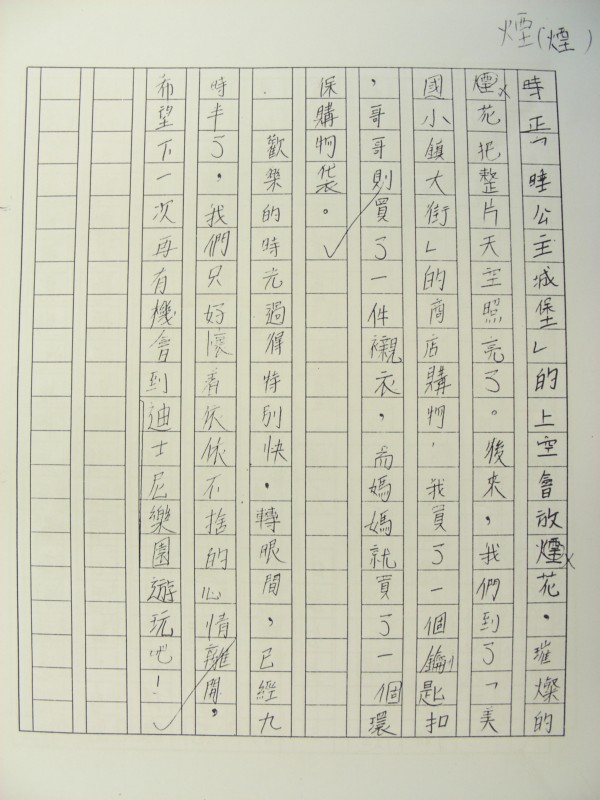 煙(煙)
時正「睡公主城堡」的上空會放煙花。璀燦的
煙花把整片天空照亮了。後來,我們到了「美
國小鎮大街」的商店購物,我買了一個鑰匙扣
,哥哥則買了一件襯衣,而媽媽就買了一個環
保購物袋。
歡樂的時光過得特別快,轉眼間,已經九
時半了,我們只好懷着依依不捨的心情離開,
希望下一次再有機會到迪士尼樂園遊玩吧!